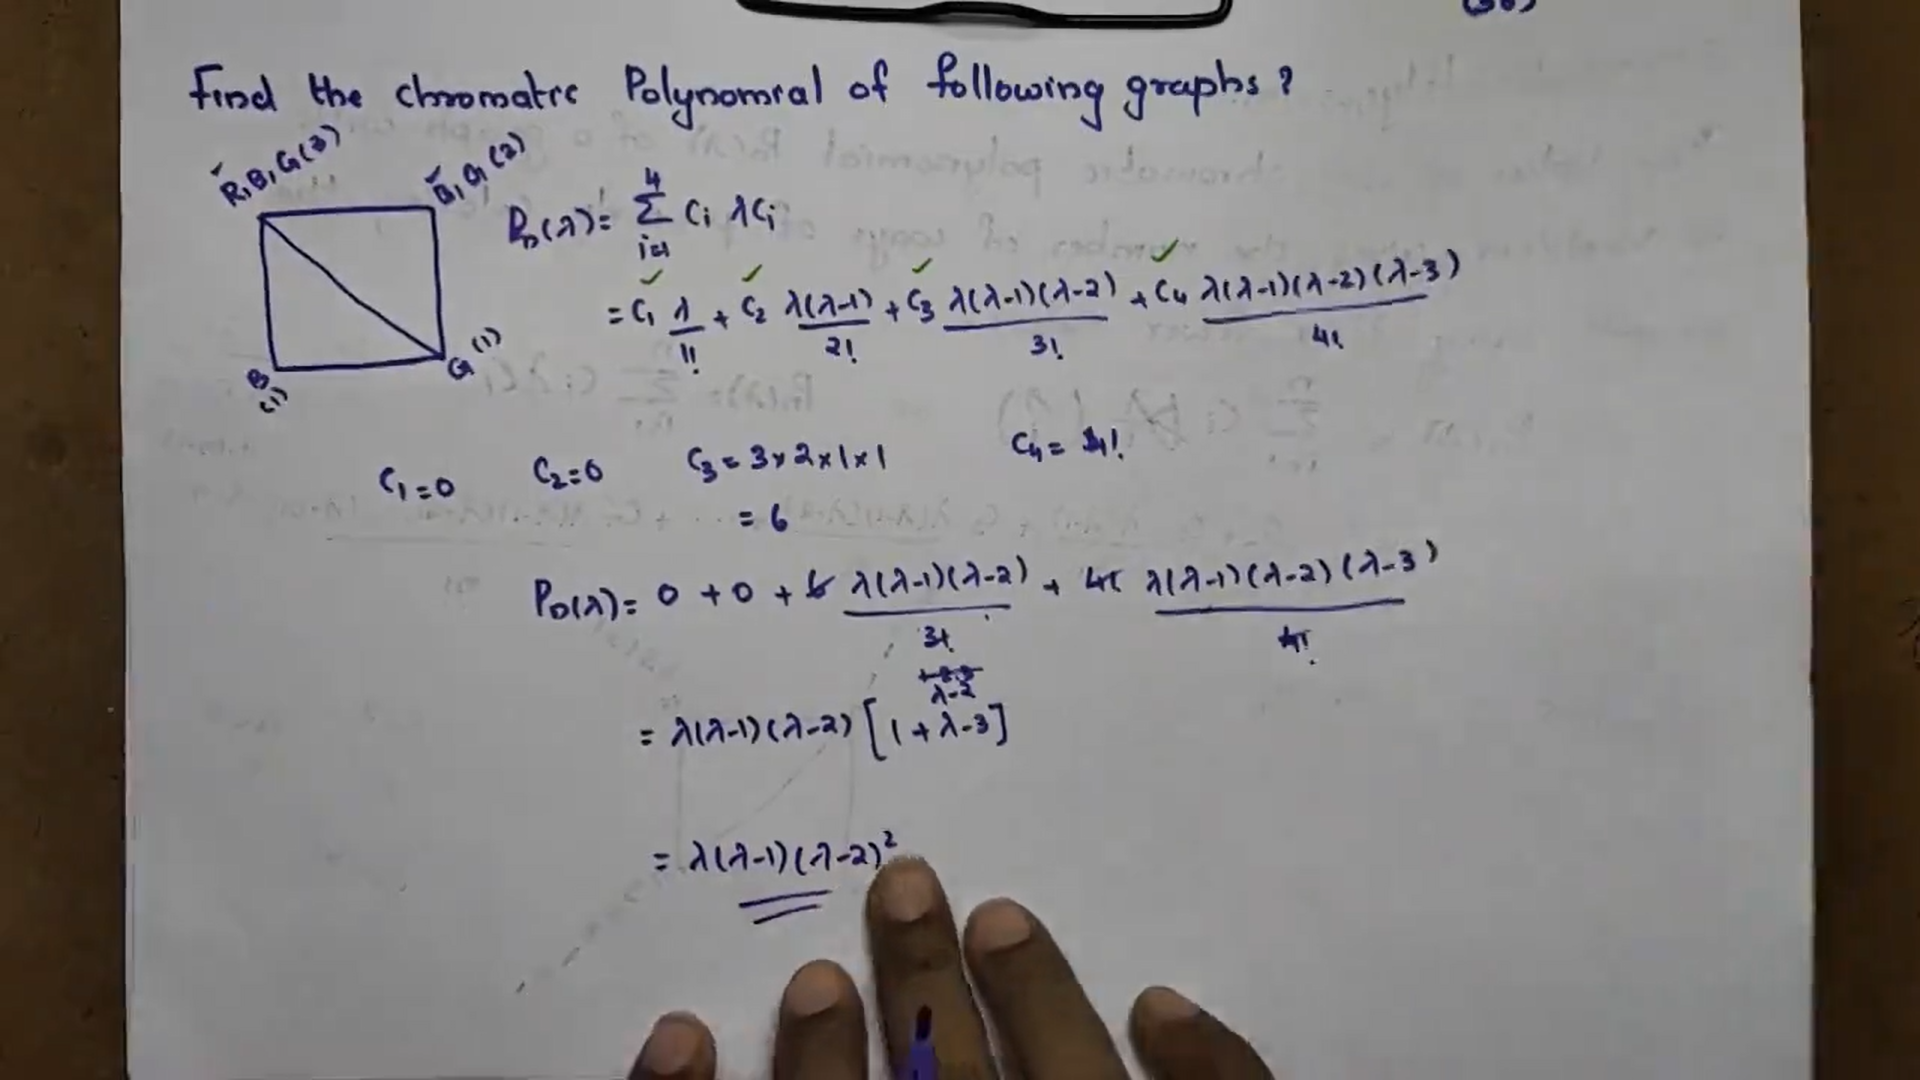 Find the chromatic Polynomial of following graphs?
R, B, G (3)
B, G (2)
G (1)
B (1)
Pn(λ) = 4 Σ i=1 Ci λCi
= C1 λ/1! + C2 λ(λ-1)/2! + C3 λ(λ-1)(λ-2)/3! + C4 λ(λ-1)(λ-2)(λ-3)/4!
C1 = 0 C2 = 0 C3 = 3 × 2 × 1 × 1 C4 = 4!
= 6
Pn(λ) = 0 + 0 + 6 λ(λ-1)(λ-2)/3! + 4! λ(λ-1)(λ-2)(λ-3)/4!
λ-2
= λ(λ-1)(λ-2) [1 + λ-3]
= λ(λ-1)(λ-2)²